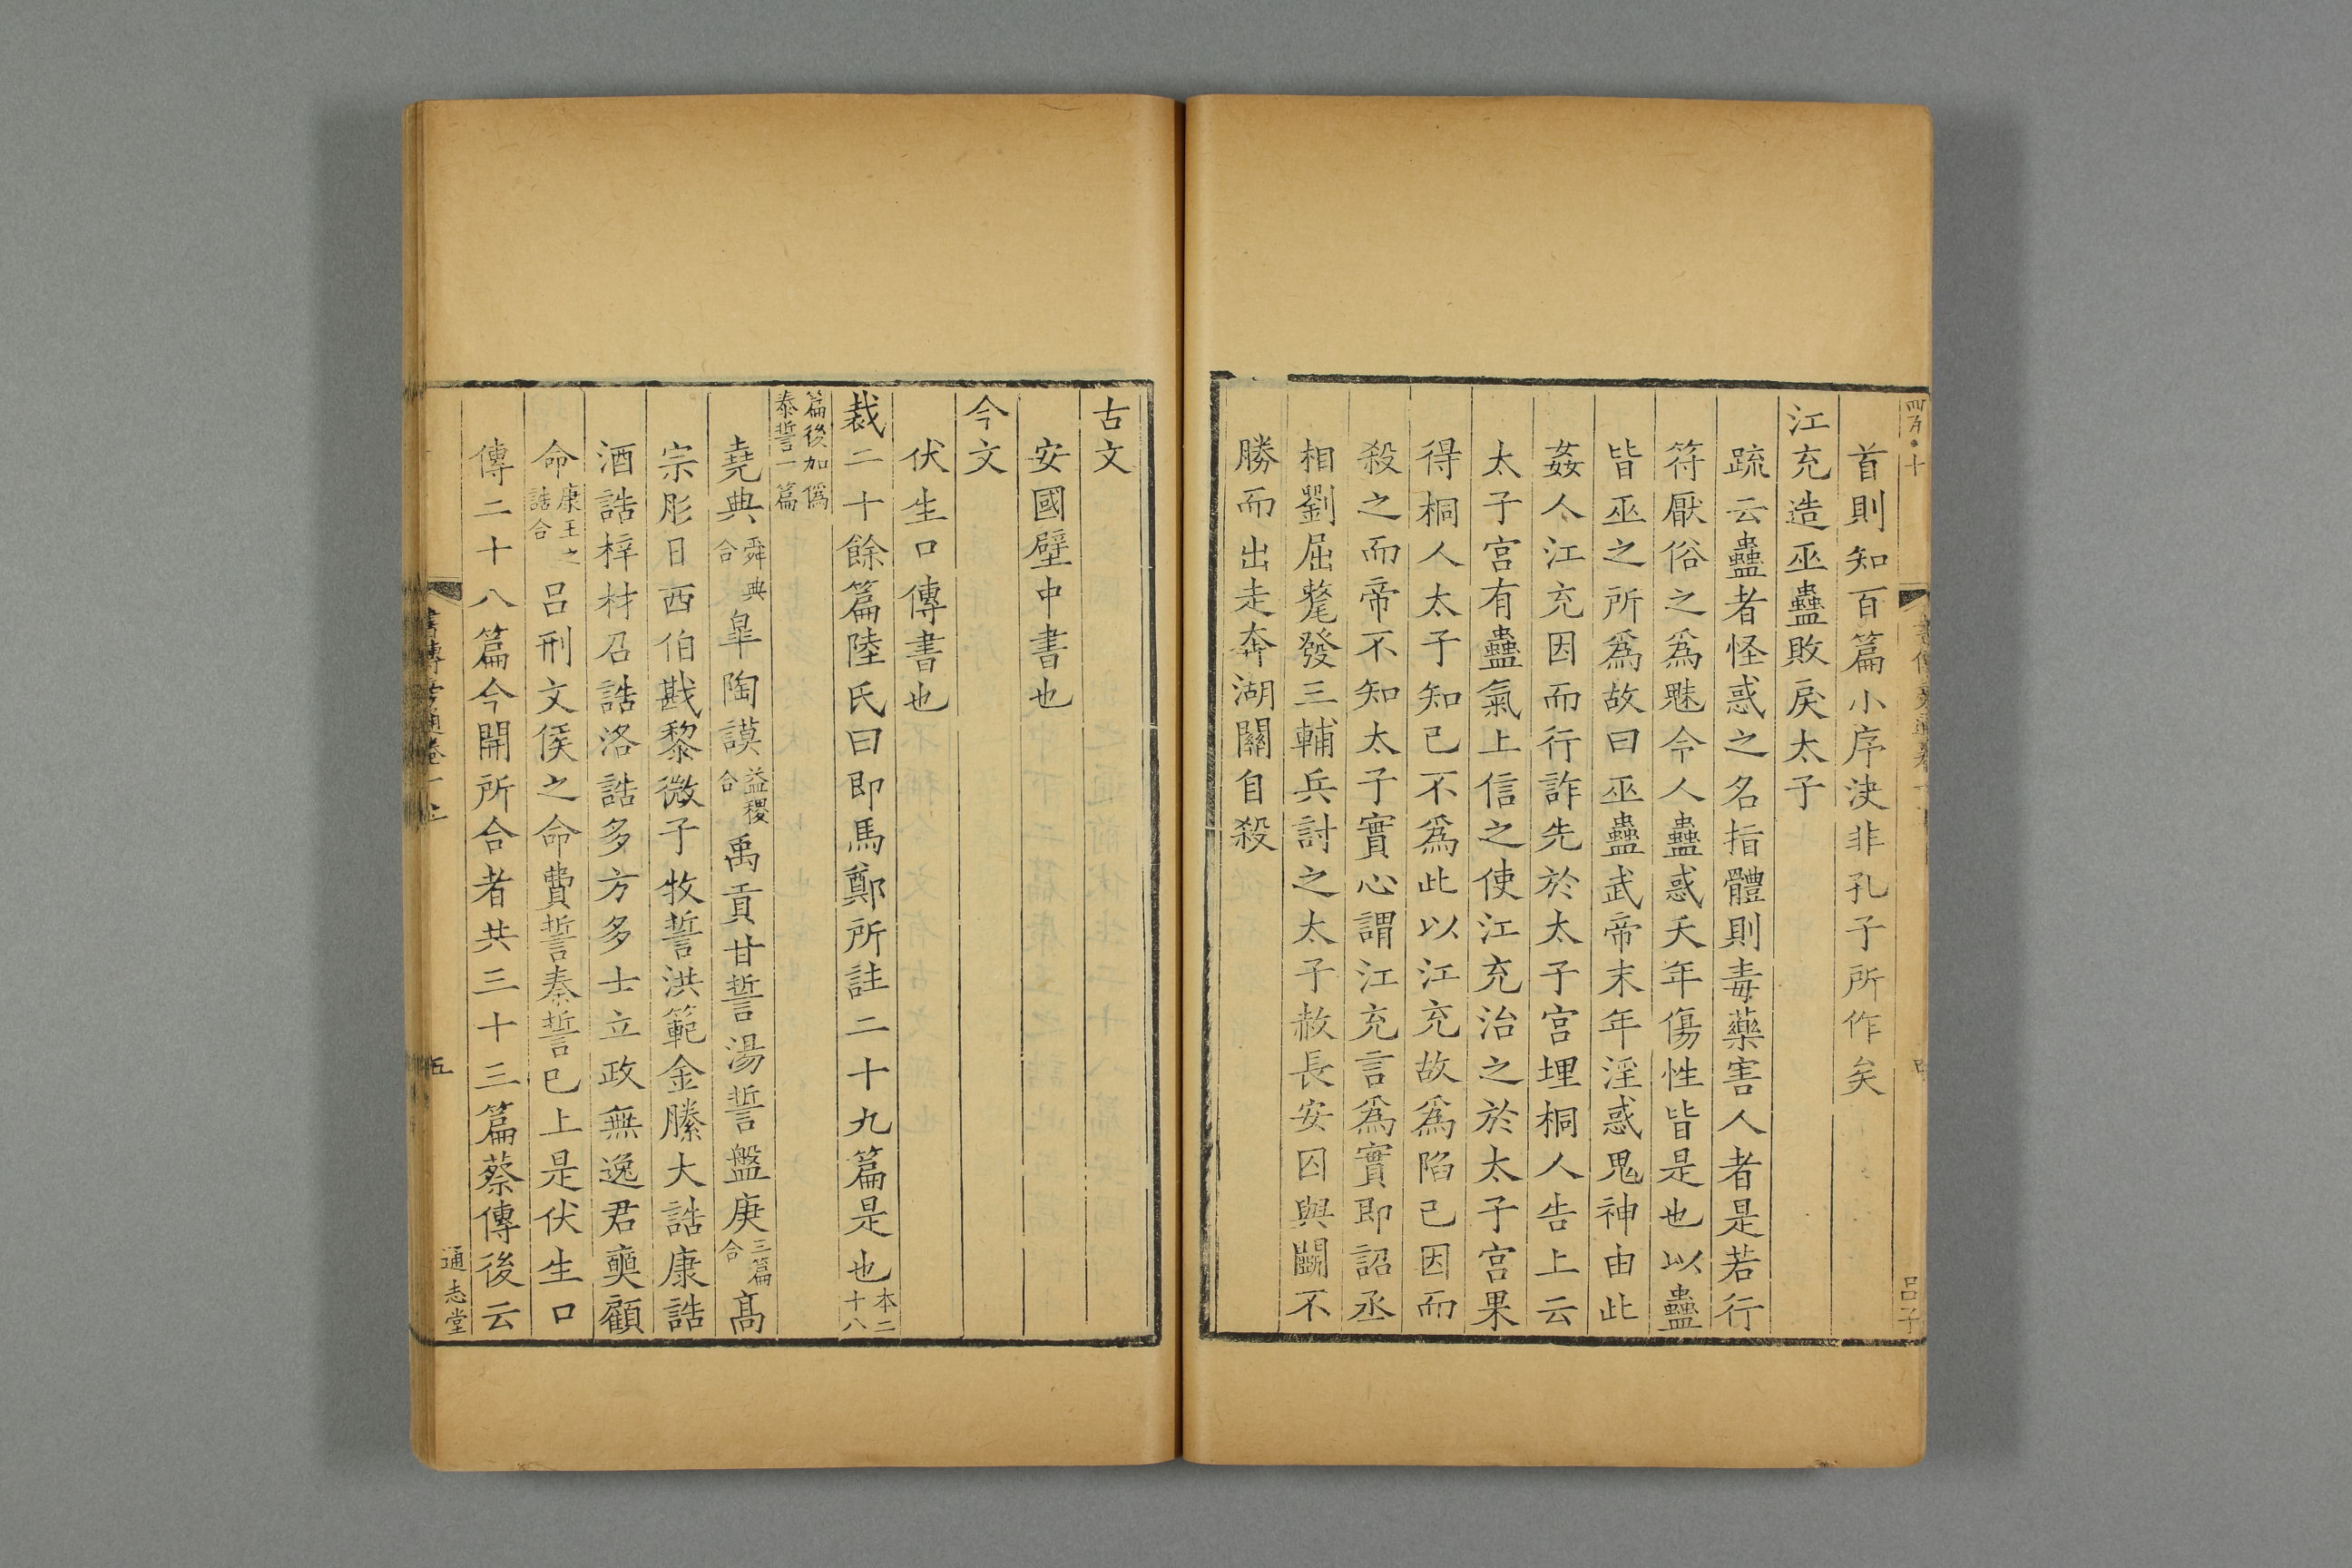 首則知百篇小序決非孔子所作矣
江充造巫蠱敗戾太子
疏云蠱者怪惑之名指體則毒藥害人者是若行
符厭俗之爲魅令人蠱惑夭年傷性皆是也以蠱
皆巫之所爲故曰巫蠱武帝末年淫惑鬼神由此
姦人江充因而行詐先於太子宮埋桐人告上云
太子宮有蠱氣上信之使江充治之於太子宮果
得桐人太子知已不爲此以江充故爲陷已因而
殺之而帝不知太子實心謂江充言爲實即詔丞
相劉屈氂發三輔兵討之太子赦長安囚與鬭不
勝而出走奔湖關自殺
呂子
古文
安國壁中書也
今文
伏生口傳書也
裁二十餘篇陸氏曰即馬鄭所註二十九篇是也本二十八
篇後加僞泰誓一篇
堯典舜典合皐陶謨益稷合禹貢甘誓湯誓盤庚三篇合髙
宗肜日西伯戡黎微子牧誓洪範金縢大誥康誥
酒誥梓材召誥洛誥多方多士立政無逸君奭顧
命康王之誥合呂刑文侯之命費誓秦誓巳上是伏生口
傳二十八篇今開所合者共三十三篇蔡傳後云
書傳旁通卷一上
五
通志堂